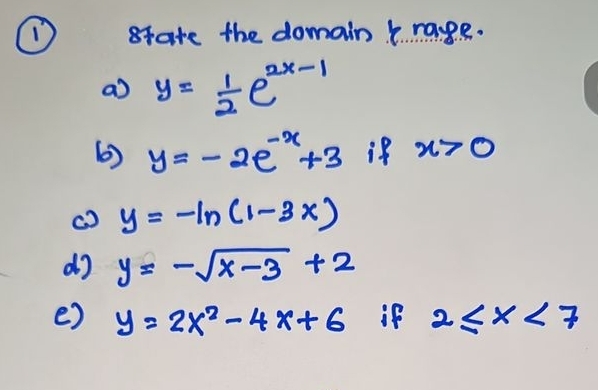 ① State the domain & rage.
a) y = 1/2 e^(2x-1)
b) y = - 2e^(-x) +3 if x>0
c) y = -ln (1-3x)
d) y = -√(x-3) +2
e) y = 2x² - 4x + 6 if 2 ≤ x < 7